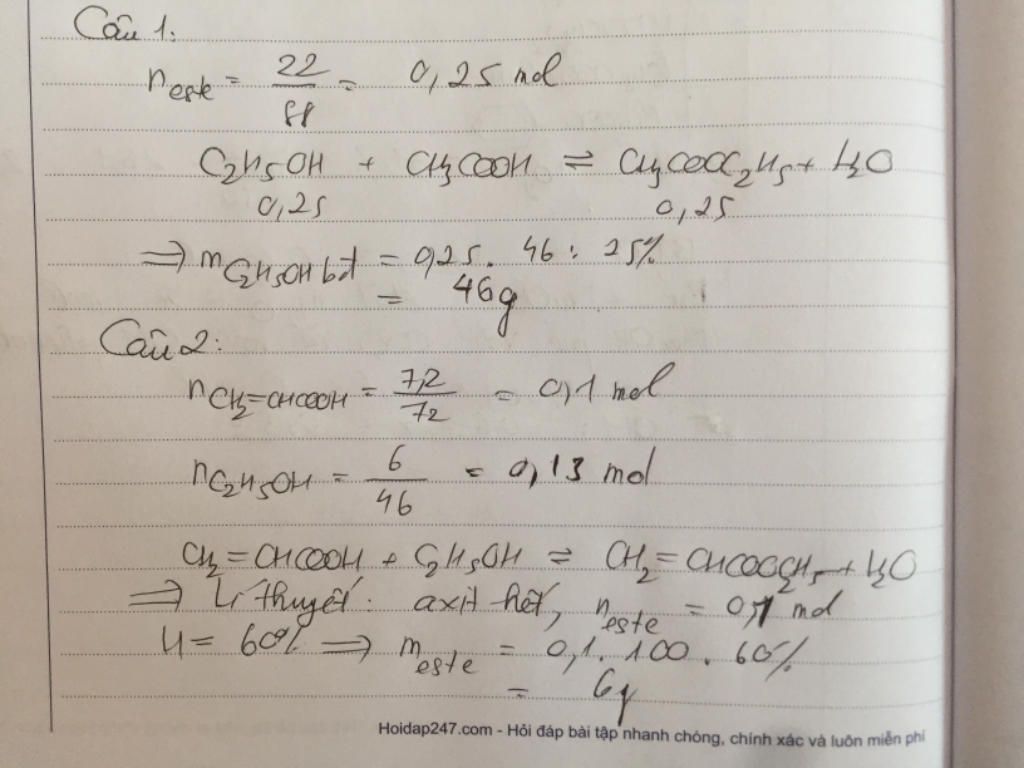 Câu 1:
n este = 22/88 = 0,25 mol
C2H5OH + CH3COOH ⇌ CH3COOC2H5 + H2O
0,25 0,25
⇒ m C2H5OH bđ = 0,25 . 46 : 25%
= 46g
Câu 2:
n CH2=CHCOOH = 7,2/72 = 0,1 mol
n C2H5OH = 6/46 = 0,13 mol
CH2=CHCOOH + C2H5OH ⇌ CH2=CHCOOC2H5 + H2O
⇒ Lí thuyết: axit hết, n este = 0,1 mol
H = 60% ⇒ m este = 0,1 . 100 . 60%
= 6g
Hoidap247.com - Hỏi đáp bài tập nhanh chóng, chính xác và luôn miễn phí